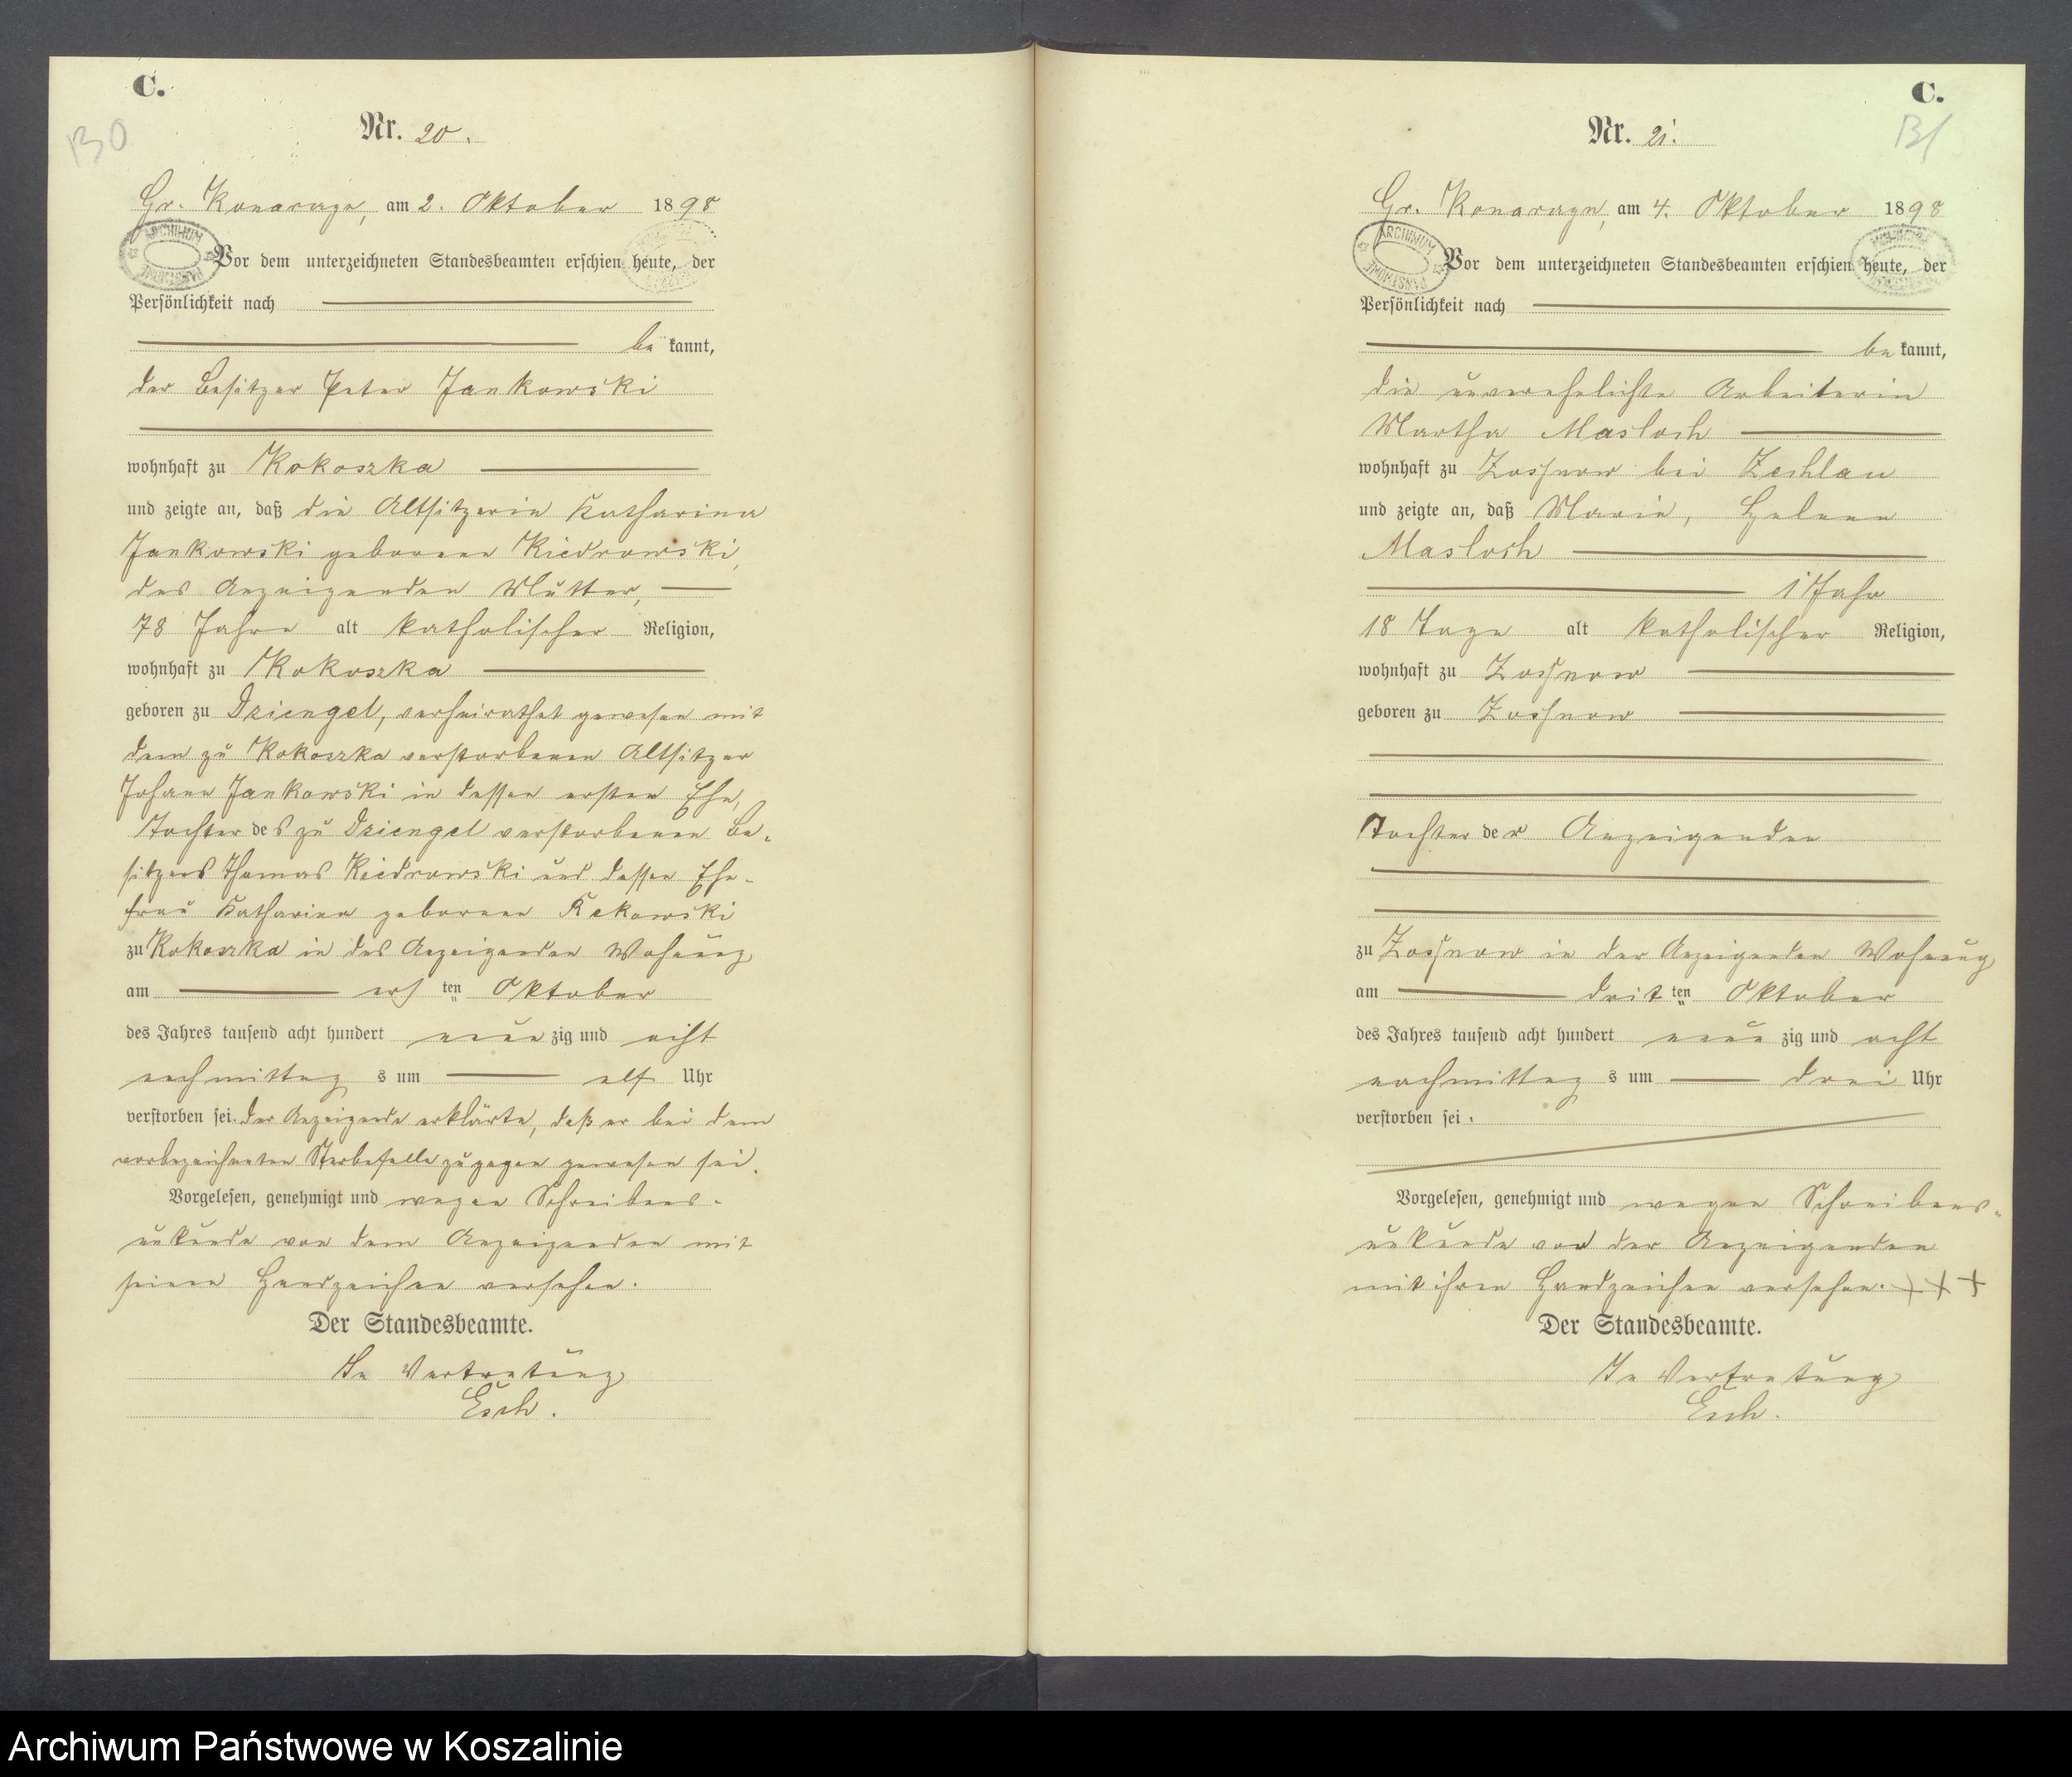 C.
130
Nr. 20.
Gr. Konarczyn, am 2. Oktober 1898
ARCHIWUM PAŃSTWOWE
Vor dem unterzeichneten Standesbeamten erschien heute, der
Persönlichkeit nach
be kannt,
der Besitzer Peter Jankowski
wohnhaft zu Kokoszka
und zeigte an, daß die Altsitzerin Katharina
Jankowski geborene Kiedrowski,
des Anzeigenden Mutter,
78 Jahre alt katholischer Religion,
wohnhaft zu Kokoszka
geboren zu Dziengel, verheirathet gewesen mit
dem zu Kokoszka verstorbenen Altsitzer
Johann Jankowski in dessen ersten Ehe,
Tochter des zu Dziengel verstorbenen Be-
sitzers Thomas Kiedrowski und dessen Ehe-
frau Katharina geborene Rekowski
zu Kokoszka in des Anzeigenden Wohnung
am ersten Oktober
des Jahres tausend acht hundert neun zig und acht
nachmittag s um elf Uhr
verstorben sei. Der Anzeigende erklärte, daß er bei dem
vorbezeichneten Sterbefalle zugegen gewesen sei.
Vorgelesen, genehmigt und wegen Schreibens-
unkunde von dem Anzeigenden mit
seinen Handzeichen versehen.
Der Standesbeamte.
In Vertretung
Esch.
C.
131
Nr. 21.
Gr. Konarczyn, am 4. Oktober 1898
ARCHIWUM PAŃSTWOWE
Vor dem unterzeichneten Standesbeamten erschien heute, der
Persönlichkeit nach
be kannt,
die unverehelichte Arbeiterin
Martha Masloch
wohnhaft zu Zossnow bei Zechlau
und zeigte an, daß Marie, Helene
Masloch
1 Jahr
18 Tage alt katholischer Religion,
wohnhaft zu Zossnow
geboren zu Zossnow
Tochter der Anzeigenden
zu Zossnow in der Anzeigenden Wohnung
am dritten Oktober
des Jahres tausend acht hundert neun zig und acht
nachmittag s um drei Uhr
verstorben sei.
Vorgelesen, genehmigt und wegen Schreibens-
unkunde von der Anzeigenden
mit ihren Handzeichen versehen. + + +
Der Standesbeamte.
In Vertretung
Esch.
Archiwum Państwowe w Koszalinie